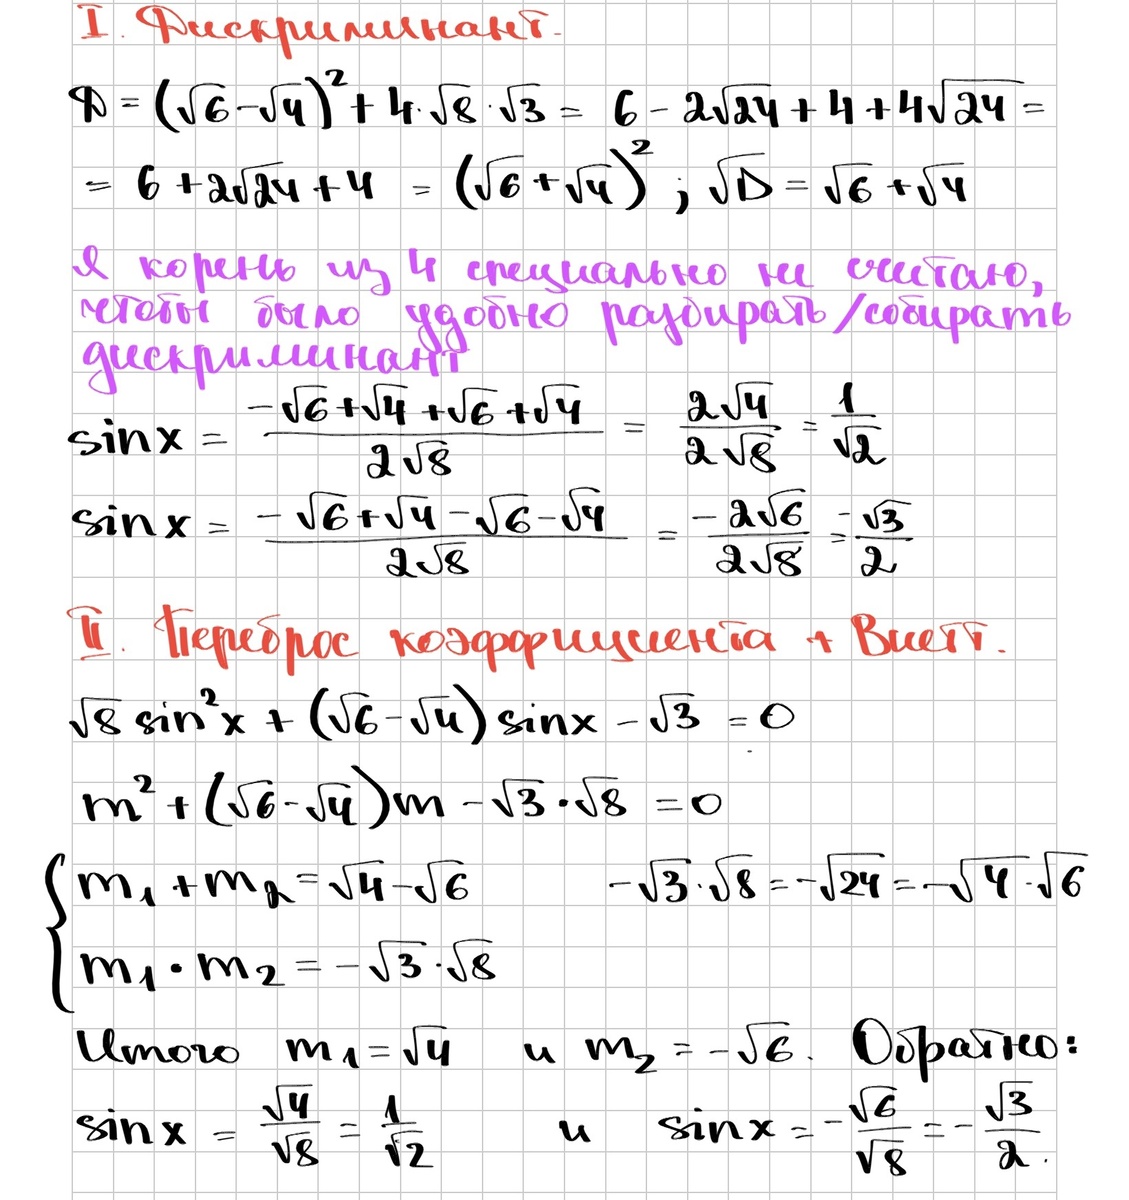 I. Дискриминант.
D = (√6 - √4)² + 4·√8·√3 = 6 - 2√24 + 4 + 4√24 =
= 6 + 2√24 + 4 = (√6 + √4)² ; √D = √6 + √4
Я корень из 4 специально не считаю,
чтобы было удобно разбирать/собирать
дискриминант
sinx = (-√6 + √4 + √6 + √4)/(2√8) = 2√4/2√8 = 1/√2
sinx = (-√6 + √4 - √6 - √4)/(2√8) = -2√6/2√8 = -√3/2
II. Переброс коэффициента + Виетт.
√8 sin²x + (√6 - √4) sinx - √3 = 0
m² + (√6 - √4)m - √3·√8 = 0
m₁ + m₂ = √4 - √6 -√3·√8 = -√24 = -√4·√6
m₁·m₂ = -√3·√8
Итого m₁ = √4 и m₂ = -√6. Обратно:
sinx = √4/√8 = 1/√2 и sinx = -√6/√8 = -√3/2.